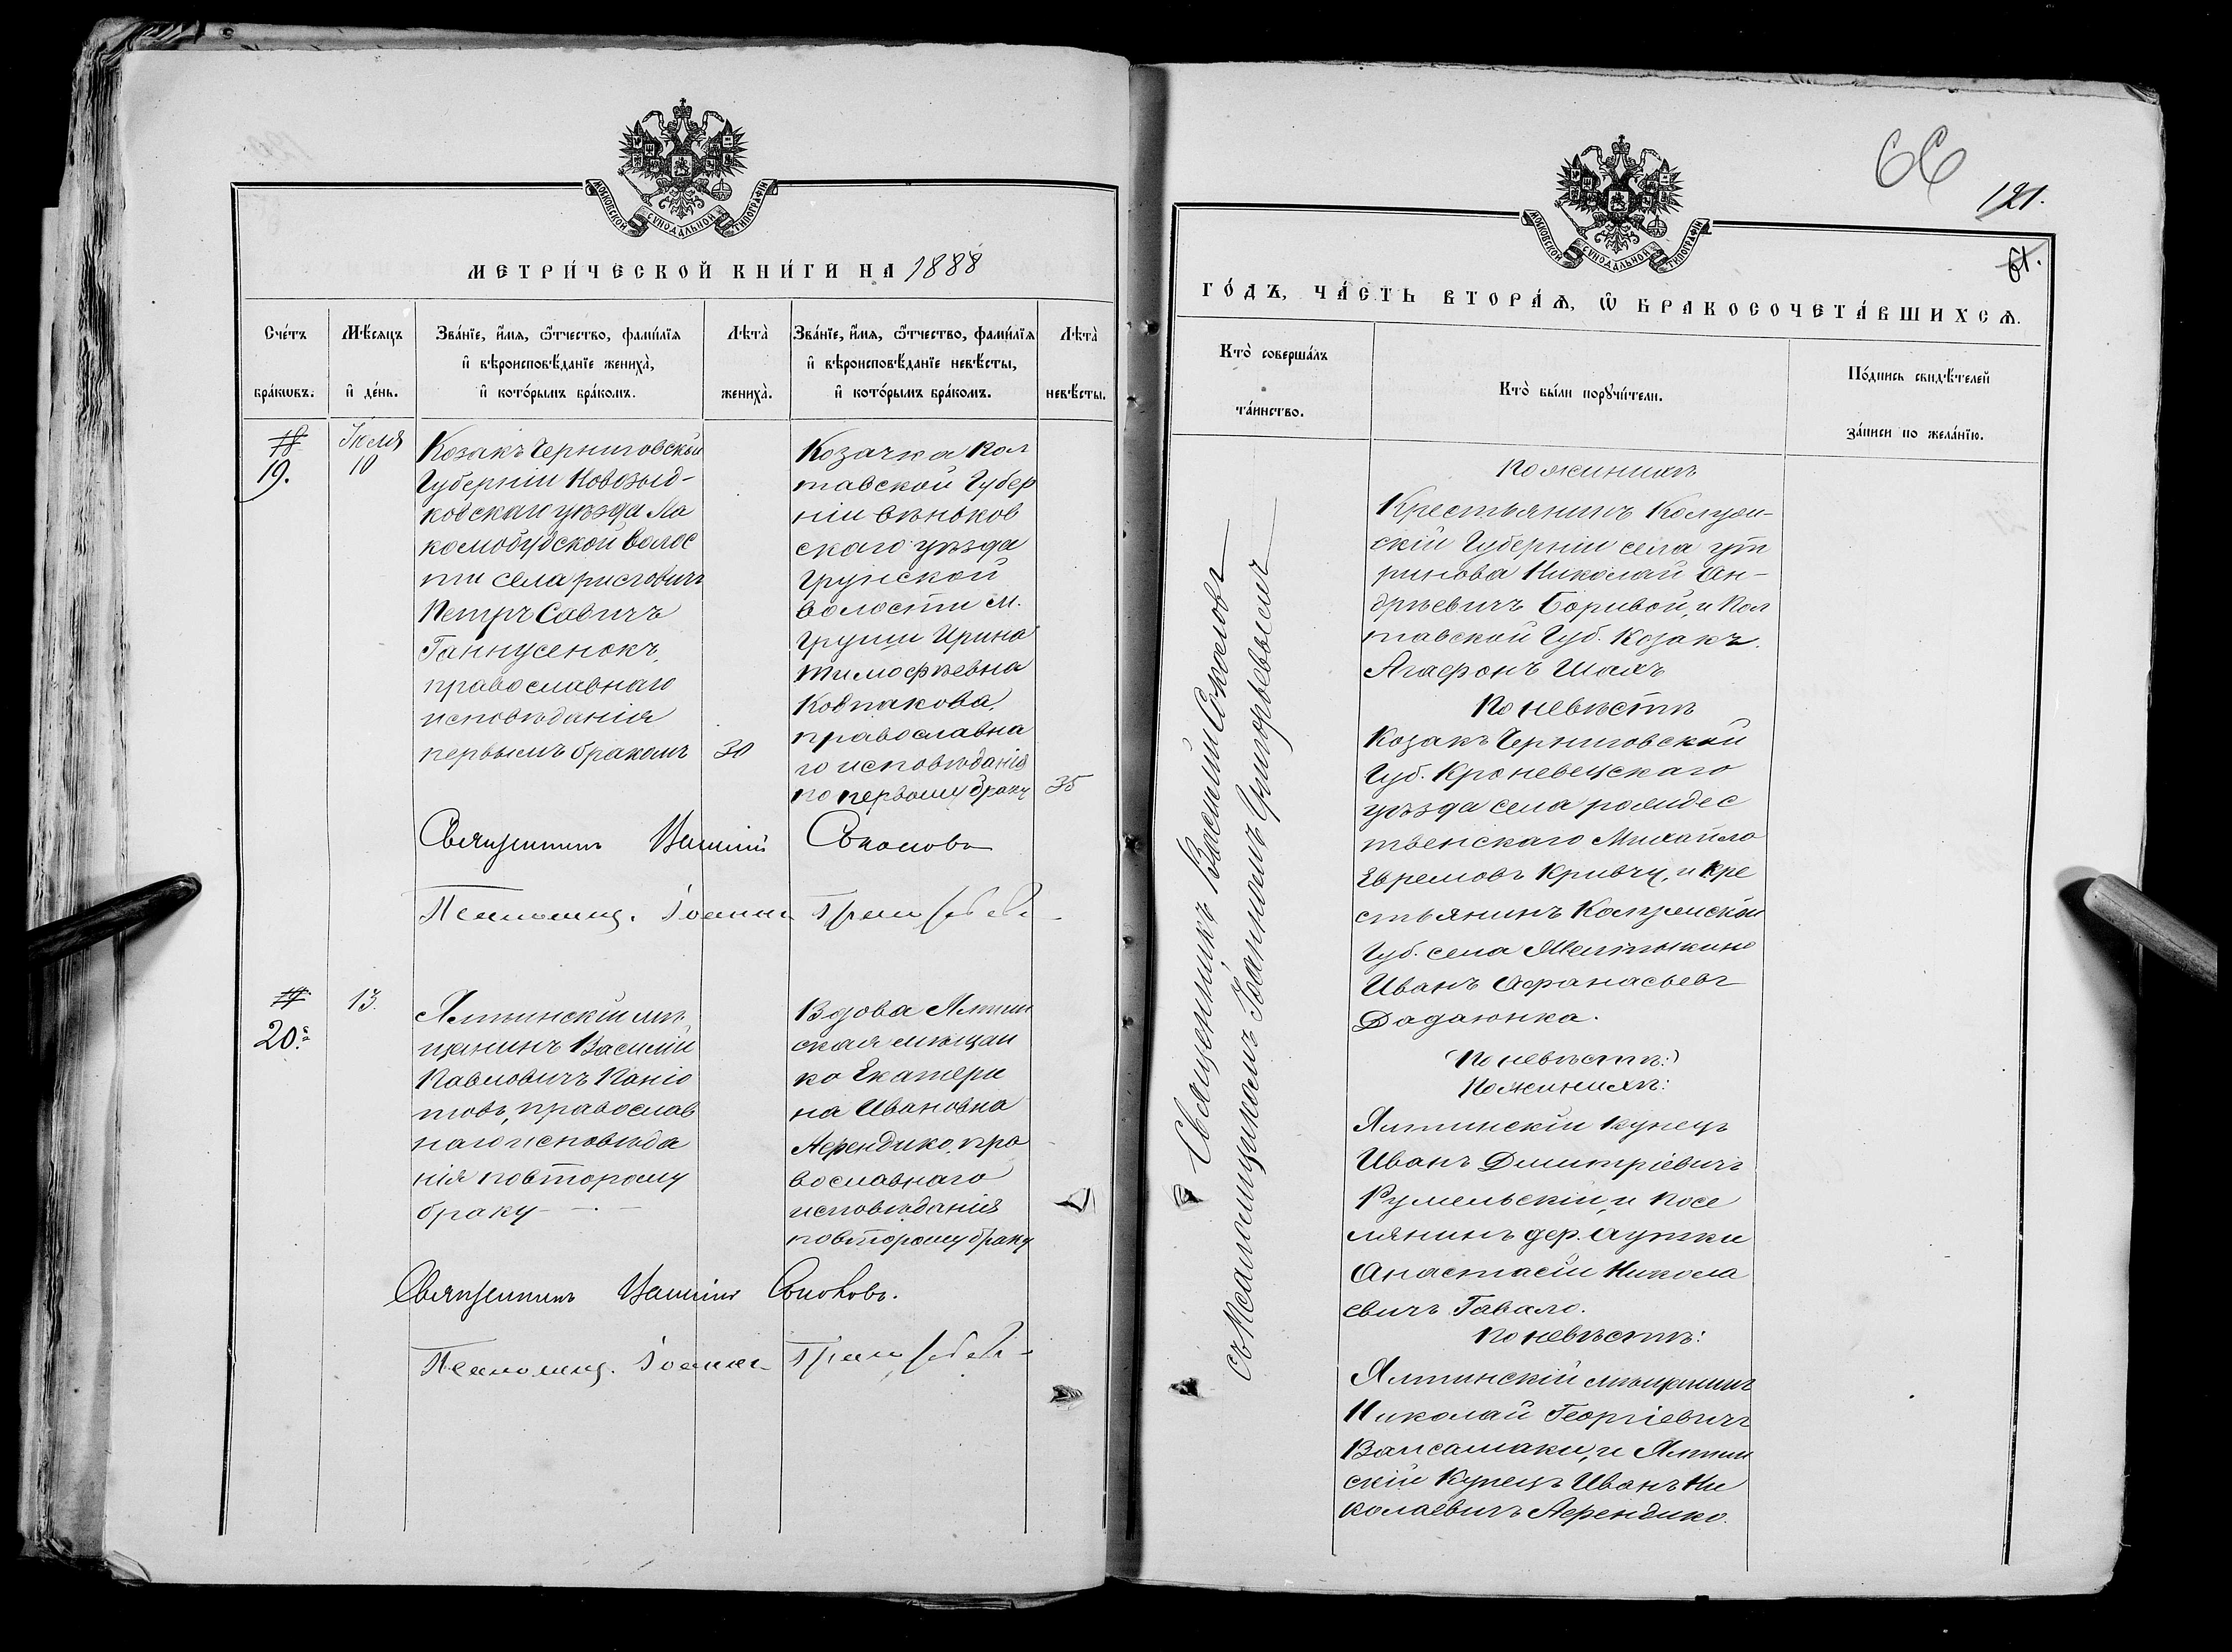 МОСКОВСКОЙ СѴНОДАЛЬНОЙ ТИПОГРАФІИ
МЕТРИ́ЧЕСКОЙ КНИ́ГИ НА 1888
Сче́тъ бра́кѡвъ.
Мѣ́сяцъ и҆ де́нь.
Зва́нїе, и҆́мѧ, ѻ҆́тчество, фами́лїѧ и҆ вѣроисповѣ́данїе жениха̀, и҆ кото́рымъ бра́комъ.
Лѣта̀ жениха̀.
Зва́нїе, и҆́мѧ, ѻ҆́тчество, фами́лїѧ и҆ вѣроисповѣ́данїе невѣ́сты, и҆ кото́рымъ бра́комъ.
Лѣта̀ невѣ́сты.
18
19.
Іюля
10
Козакъ Черниговской
Губерніи Новозыб-
ковскаго уѣзда
волос
ти села
Петръ Савичъ
Ганнусенокъ,
православнаго
исповѣданія
первымъ бракомъ
30
Козачка Пол
тавской Губер
ніи Зѣньков
скаго уѣзда
Грунской
волости м.
Груни Ирина
Тимофѣевна
Ковпакова,
православна
го исповѣданія
по первому браку
35
Священникъ Василій Соколовъ
Псаломщ. Іоаннъ Григорьевъ
19
20.
13.
Ялтинскій мѣ
щанинъ Василій
Павловичъ Паніо
товъ, православ
наго исповѣда
нія повторому
браку
Вдова Ялтин
ская мѣщан
ка Екатери
на Ивановна
Аферидико, пра
вославнаго
исповѣданія
повторому браку
Священникъ Василій Соколовъ.
Псаломщ. Іоаннъ Григорьевъ
66
121.
61.
МОСКОВСКОЙ СѴНОДАЛЬНОЙ ТИПОГРАФІИ
ГО́ДЪ, ЧА́СТЬ ВТОРА́Ѧ, Ѽ БРАКОСОЧЕТА́ВШИХСѦ.
Кто̀ соверша́лъ та́инство.
Кто̀ бы́ли порꙋчи́тели.
По́дпись свидѣ́телей за́писи по жела́нїю.
Священникъ Василій Соколовъ
съ Псаломщикомъ Іоанномъ Григорьевымъ
По женихѣ
Крестьянинъ Калуж-
скій Губерніи села
Николай Ан-
дрѣевичъ Боривой, и Пол
тавской Губ. Козакъ
Агафонъ Шахъ
По невѣстѣ
Козакъ Черниговской
Губ. Кроневецскаго
уѣзда села рождес
твенскаго Михайло
Ефремовъ Кривчу, и кре
стьянинъ
Губ. села
Иванъ Афанасьевъ
Дадаюнка.
(По невѣстѣ:)
По женихѣ:
Ялтинскій купецъ
Иванъ Димитріевичъ
Румельскій, и посе
лянинъ дер. Аутки
Анастасій Никола
евичъ Гавало.
По невѣстѣ:
Ялтинскій мѣщанинъ
Николай Георгіевичъ
Вапсамаки, и Ялтин
скій Купецъ Иванъ Ни
колаевичъ Аферидико.